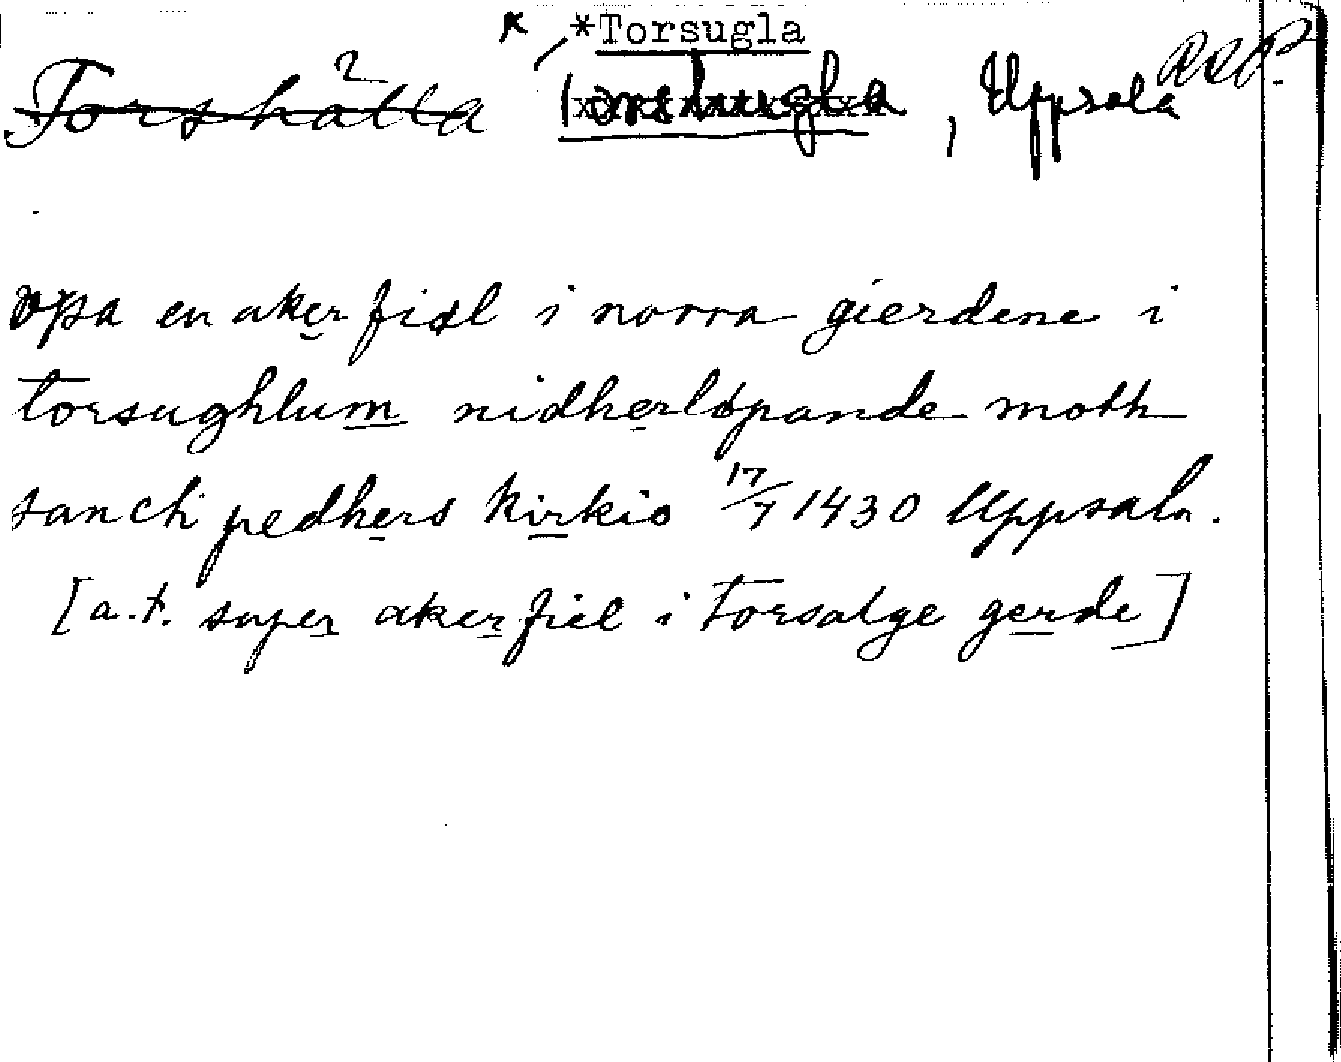 *Torsugla
Torshälla Torshugla, Uppsala RAP.
vpa en aker fiæl i norra gierdene i
torsughlum nidherløpande moth
sancti pedhers kirkio 17/7 1430 Uppsala.
[a.t. super aker fiel i torsalge gerde]